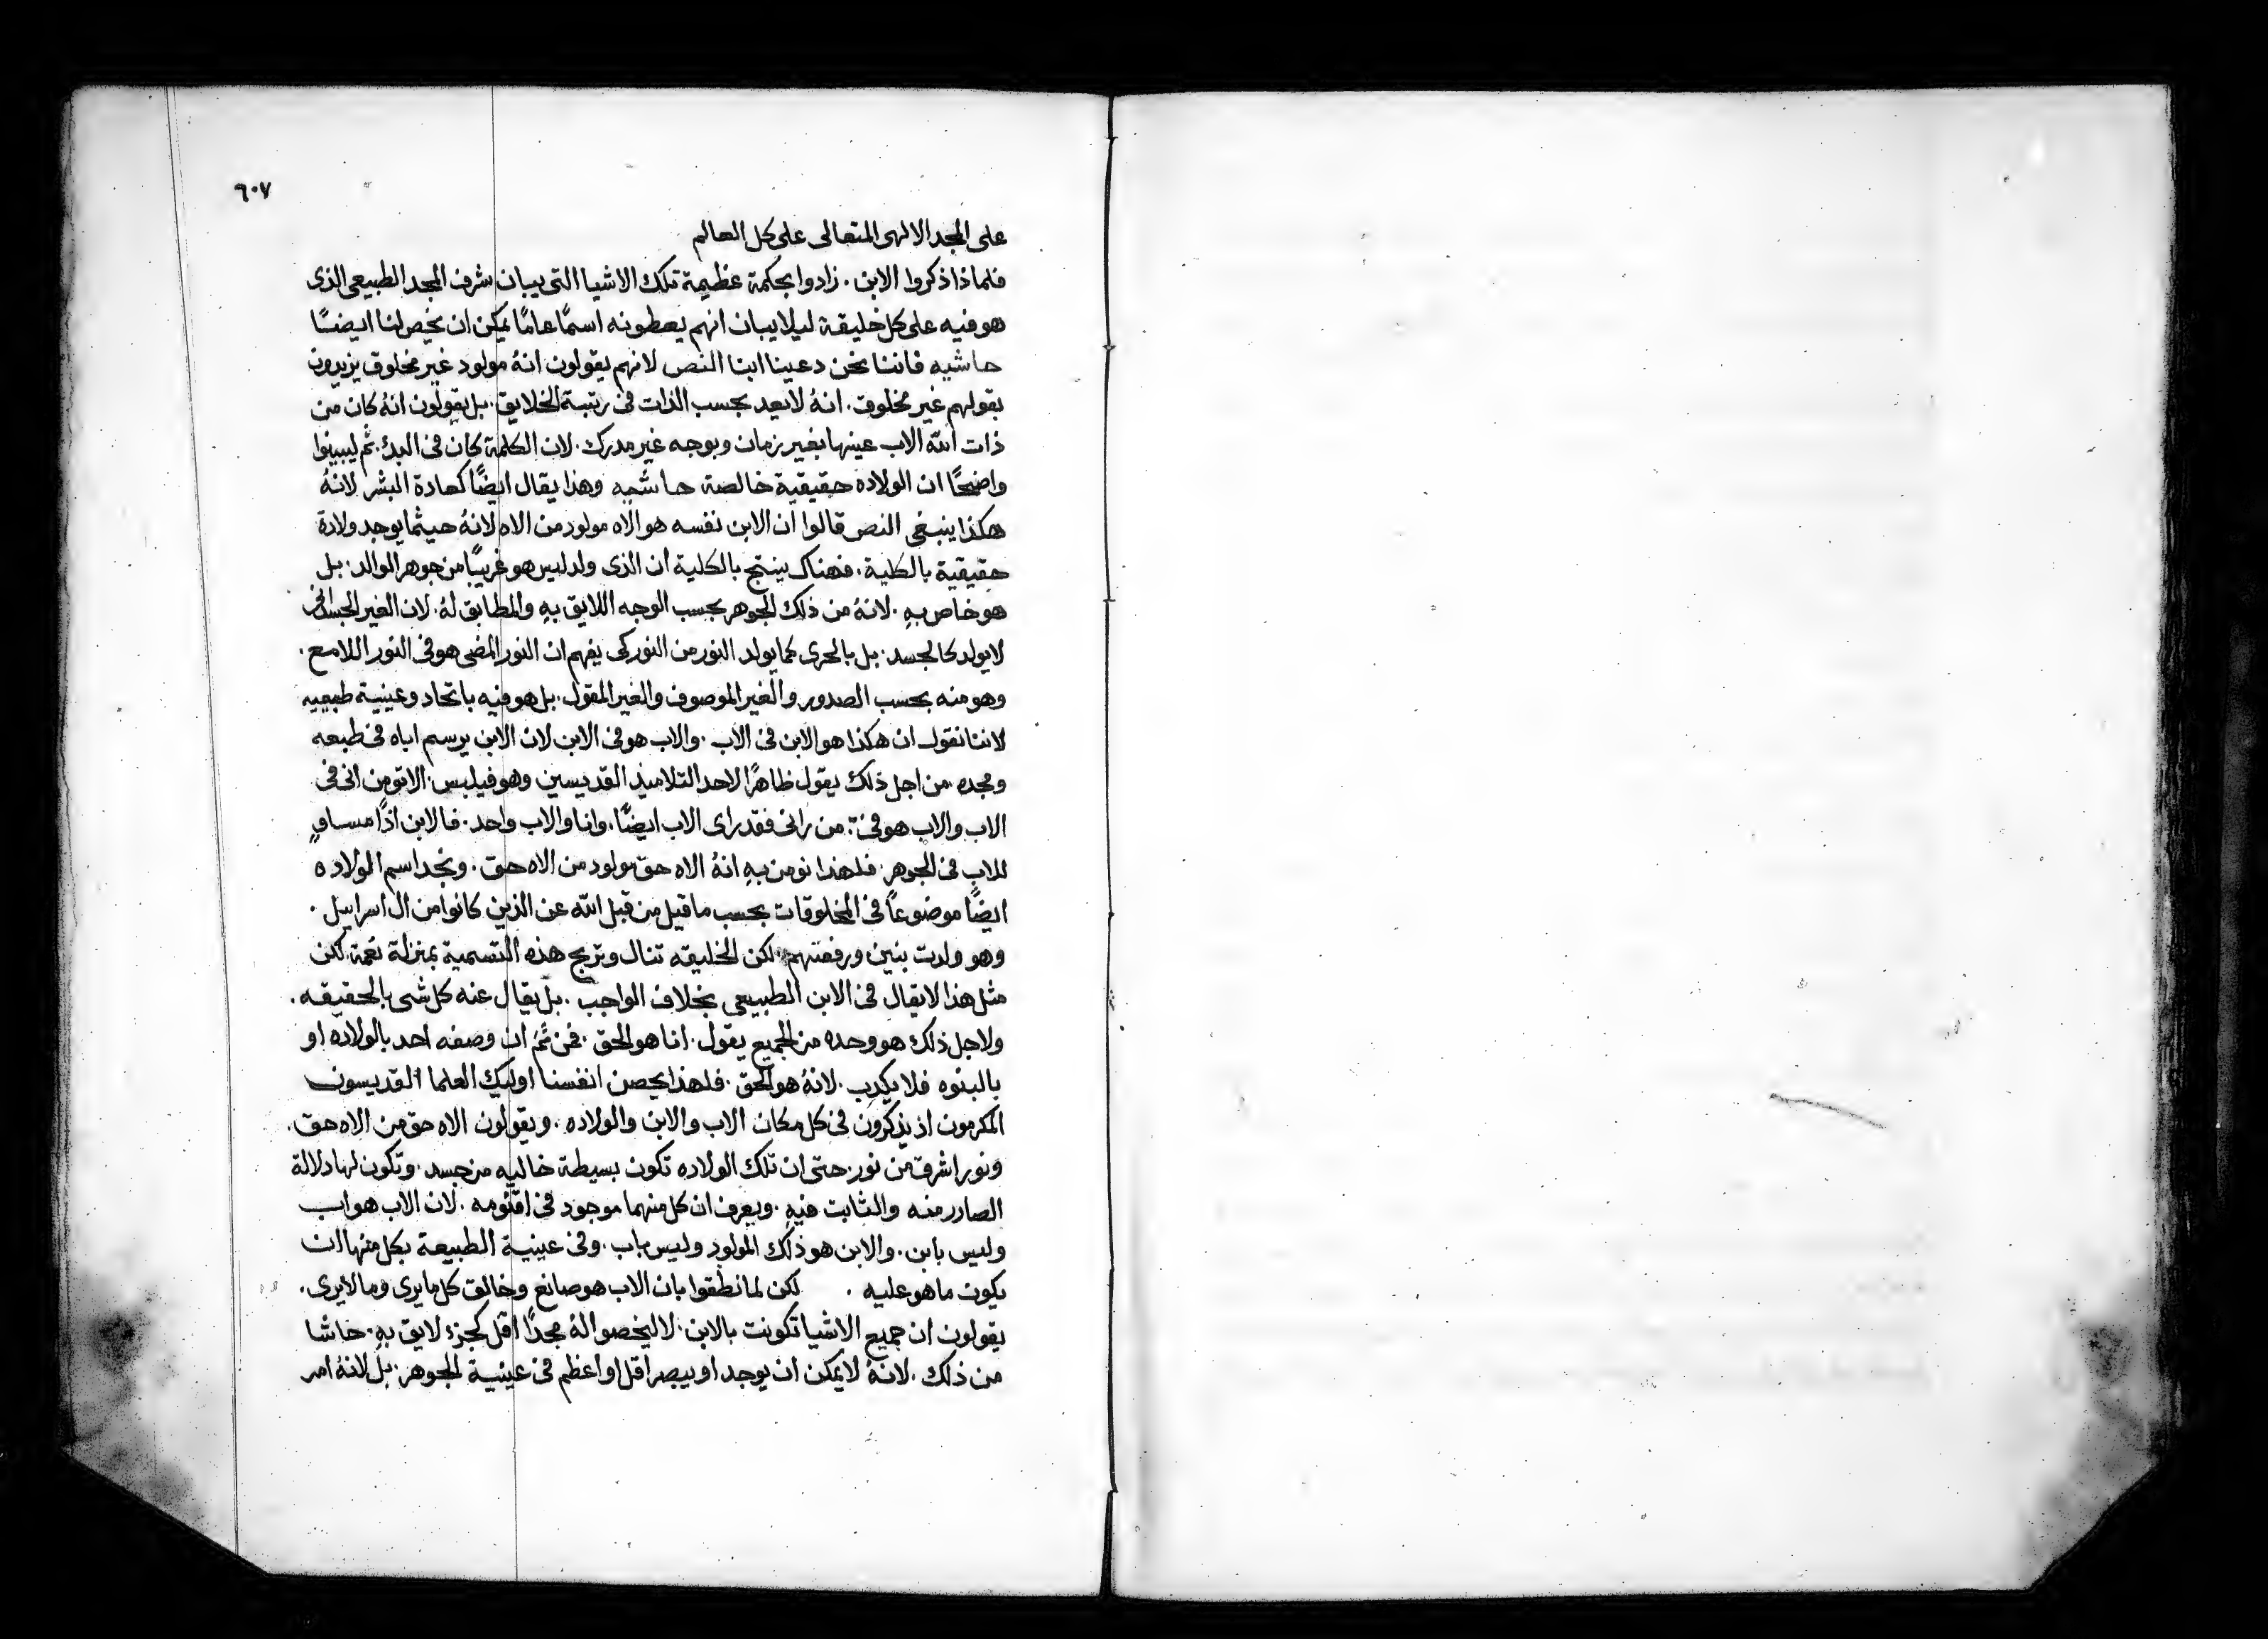 ٦٠٧
على المجد الالهى المتعالى على كل العالم
فلماذا ذكروا الابن . زادوا بحكمة عظيمة تلك الاشيا التى يبان شرف المجد الطبيعى الذى
هو فيه على كل خليقة ليلا يبان انهم يعطونه اسمًا عامًا يمكن ان يخص لنا ايضًا
حاشيه فاننا نحن دعينا ابنا النص لانهم يقولون انهُ مولود غير مخلوق يزيدون
بقولهم غير مخلوق . انهُ لا يعد بحسب الذات فى رتبة الخلايق . بل يقولون انهُ كان من
ذات الله الاب عينها بغير زمان وبوجه غير مدرك . لان الكلمة كان فى البدء . ثم ليبينوا
واضحًا ان الولاده حقيقية خالصة حاشيه وهذا يقال ايضًا كعادة البشر لانهُ
هكذا ينبغى النص قالوا ان الابن نفسه هو الاه مولود من الاه لانهُ حيثما يوجد ولادة
حقيقية بالكلية . فهناك ينتج بالكلية ان الذى ولد ليس هو غريبًا من جوهر الوالد . بل
هو خاص بهِ . لانهُ من ذلك الجوهر بحسب الوجه اللايق بهِ والمطابق لهُ . لان الغير الجسدانى
لا يولد كالجسد . بل بالحرى كما يولد النور من النور كى يفهم ان النور المضى هو فى النور اللامع .
وهو منه بحسب الصدور والغير الموصوف والغير المقول . بل هو فيه باتحاد وعينية طبيعيه
لاننا نقول ان هكذا هو الابن فى الاب . والاب هو فى الابن لان الابن يرسم اباه فى طبعه
ومجده . من اجل ذلك يقول ظاهرًا لاحد التلاميذ القديسين وهو فيلبس . الا تومن انى فى
الاب والاب هو فىّ . من رانى فقد راى الاب ايضًا . وانا والاب واحد . فالابن اذًا مساوٍ
للاب فى الجوهر . فلهذا نومن بهِ انهُ الاه حق مولود من الاه حق . ونجد اسم الولاده
ايضًا موضوعًا فى المخلوقات بحسب ما قيل من قبل الله عن الذين كانوا من ال اسراييل .
وهو ولدت بنين ورفعتهم . لكن الخليقه تنال وتربح هذه التسمية بمنزلة نعمة . لكن
مثل هذا لا يقال فى الابن الطبيعى بخلاف الواجب . بل يقال عنه كل شى بالحقيقه .
ولاجل ذلك هو وحده من الجميع يقول . انا هو الحق . فمن ثمَّ ان وصفه احد بالولاده او
بالبنوه فلا يكذب . لانهُ هو الحق . فلهذا يحصن انفسنا اوليك العلما القديسون
المكرمون اذ يذكرون فى كل مكان الاب والابن والولاده . ويقولون الاه حق من الاه حق .
ونور اشرق من نور . حتى ان تلك الولاده تكون بسيطة خاليه من جسد . وتكون لها دلالة
الصادر منه والثابت فيهِ . ويعرف ان كل منهما موجود فى اقنومه . لان الاب هو اب
وليس بابن . والابن هو ذلك المولود وليس باب . وفى عينية الطبيعة بكل منهما ان
يكون ما هو عليه . لكن لما نطقوا بان الاب هو صانع وخالق كل ما يرى وما لا يرى .
يقولون ان جميع الاشيا تكونت بالابن . لا ليخصوا لهُ مجدًا اقل كجزء لايق بهِ . حاشا
من ذلك . لانهُ لا يمكن ان يوجد او يبصر اقل او اعظم فى عينية الجوهر . بل لانهُ امر